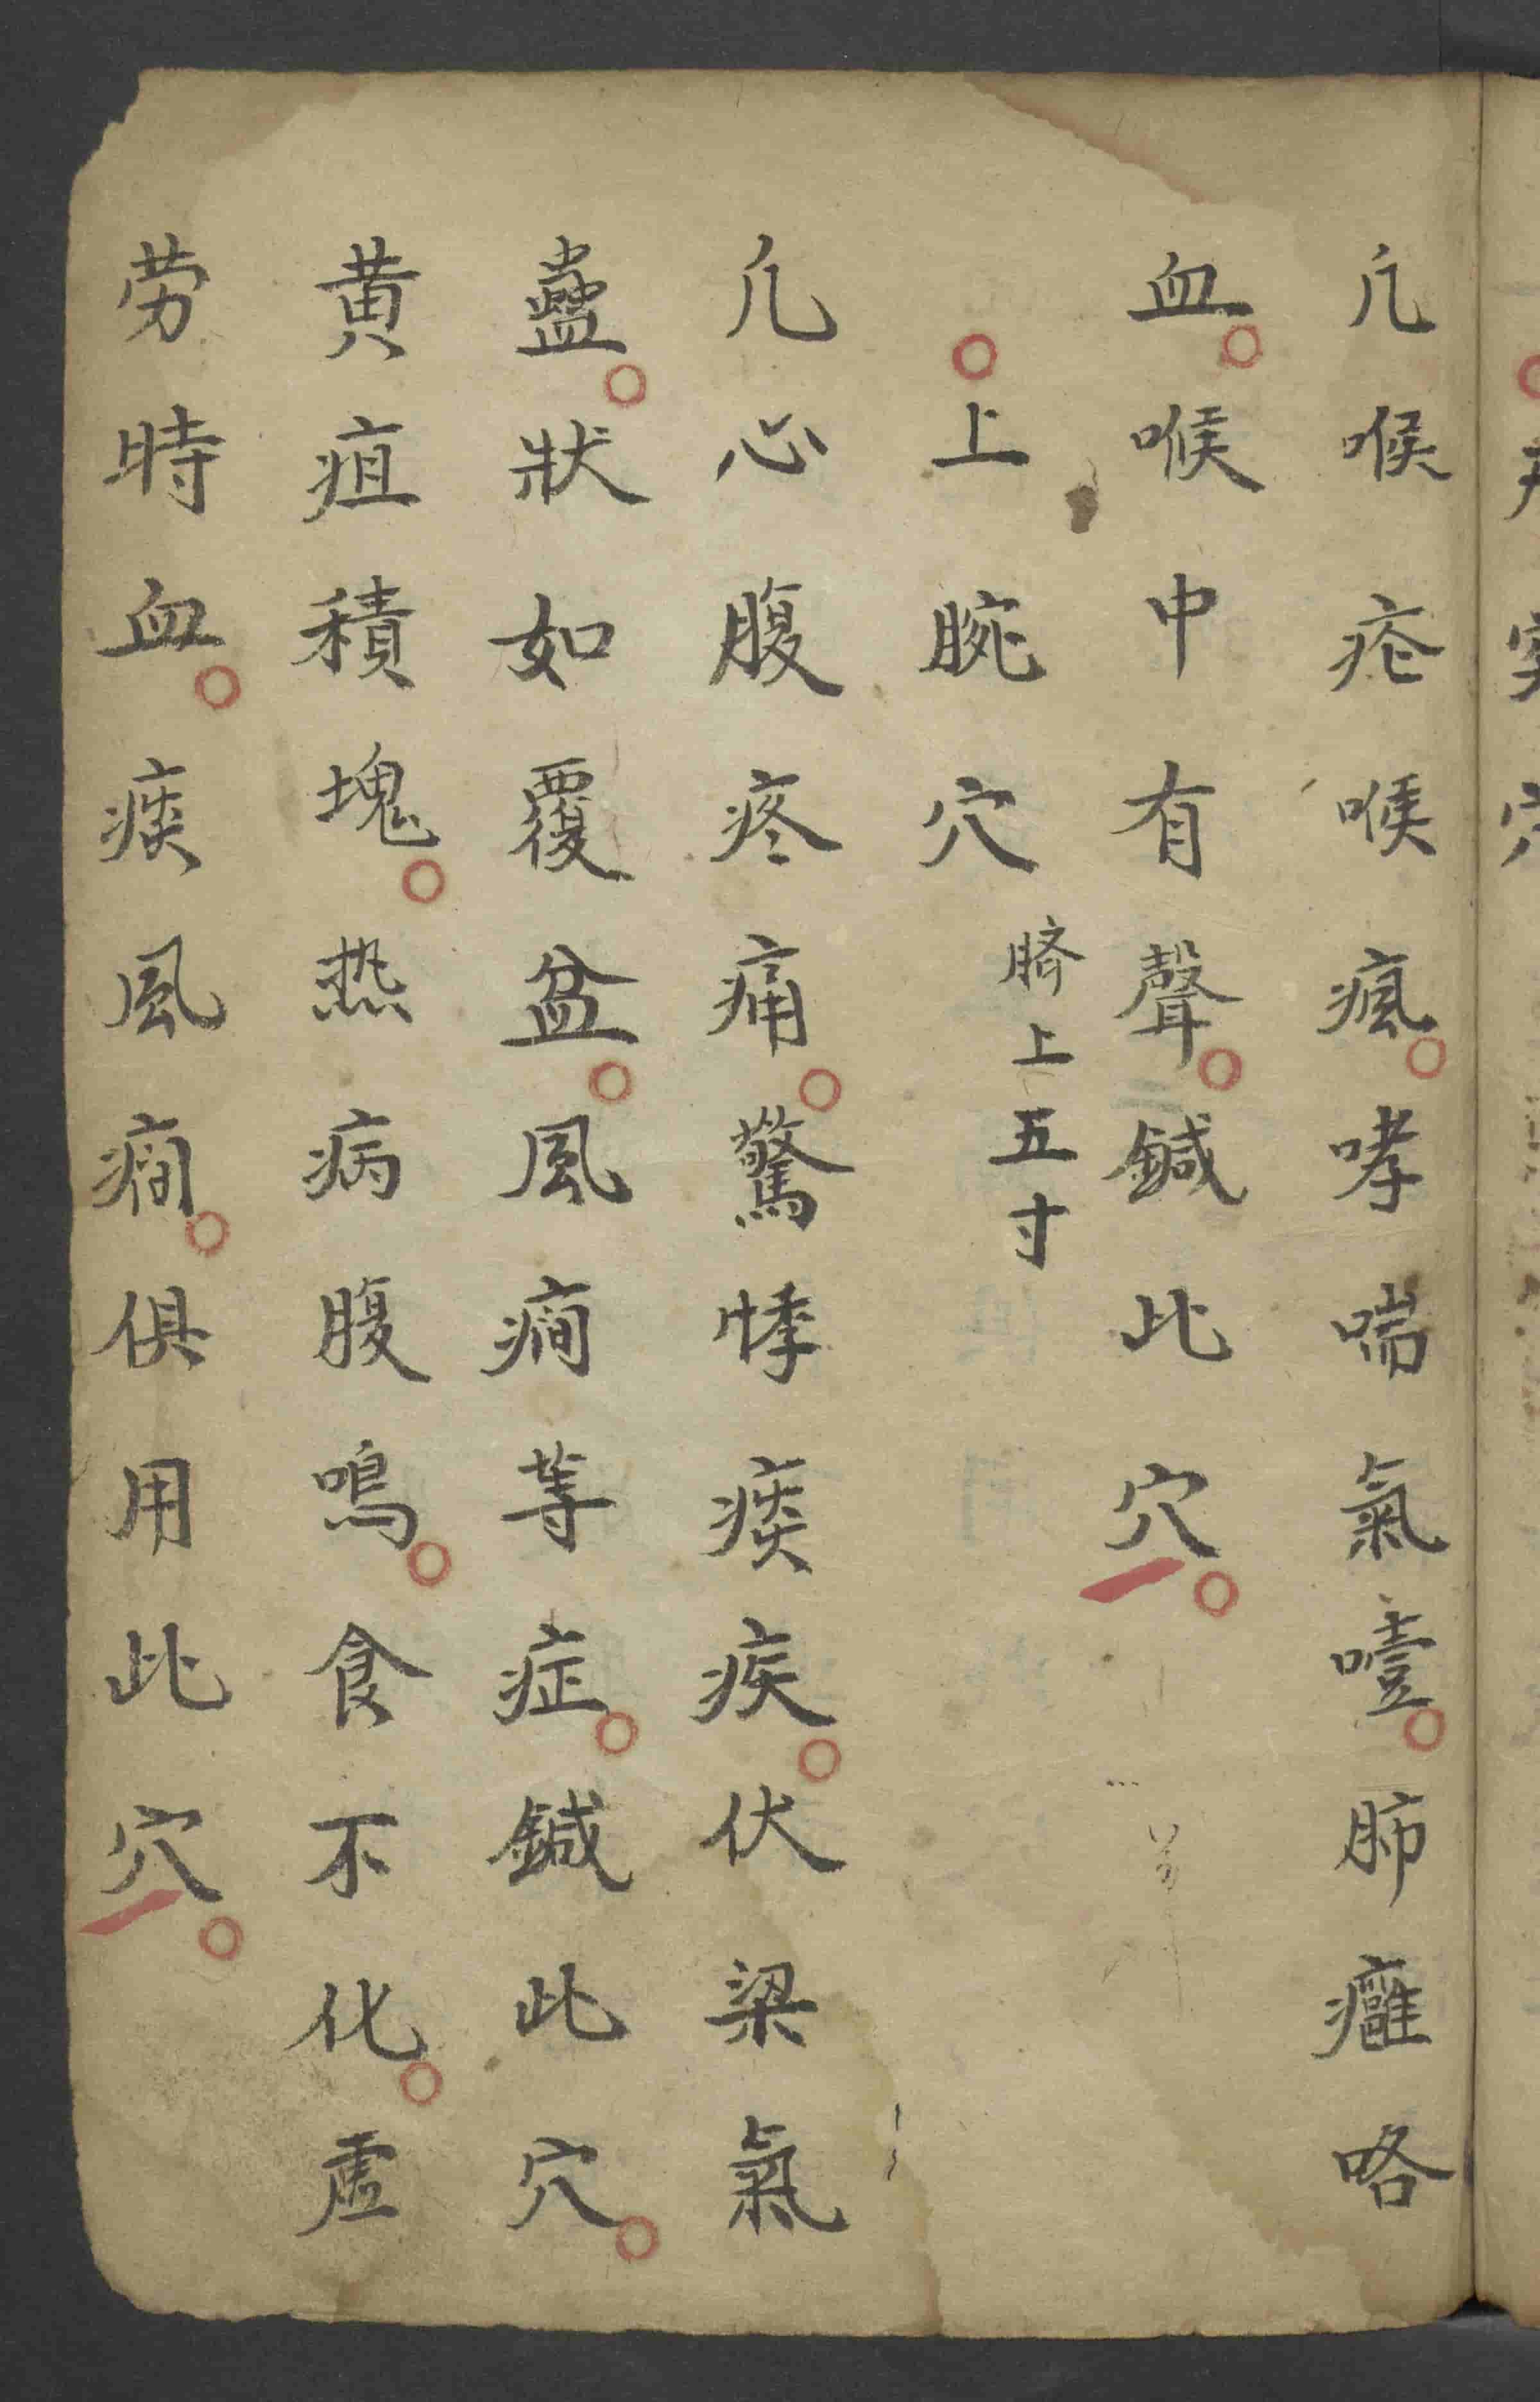 凢喉疮喉瘋哮喘氣噎肺癰咯
血喉中有聲鍼此穴
上腕穴臍上五寸
凢心腹疼痛驚悸痰疾伏梁氣
蠱狀如覆盆風癇等症鍼此穴
黄疸積塊热病腹鳴食不化虛
劳時血痰風癇俱用此穴